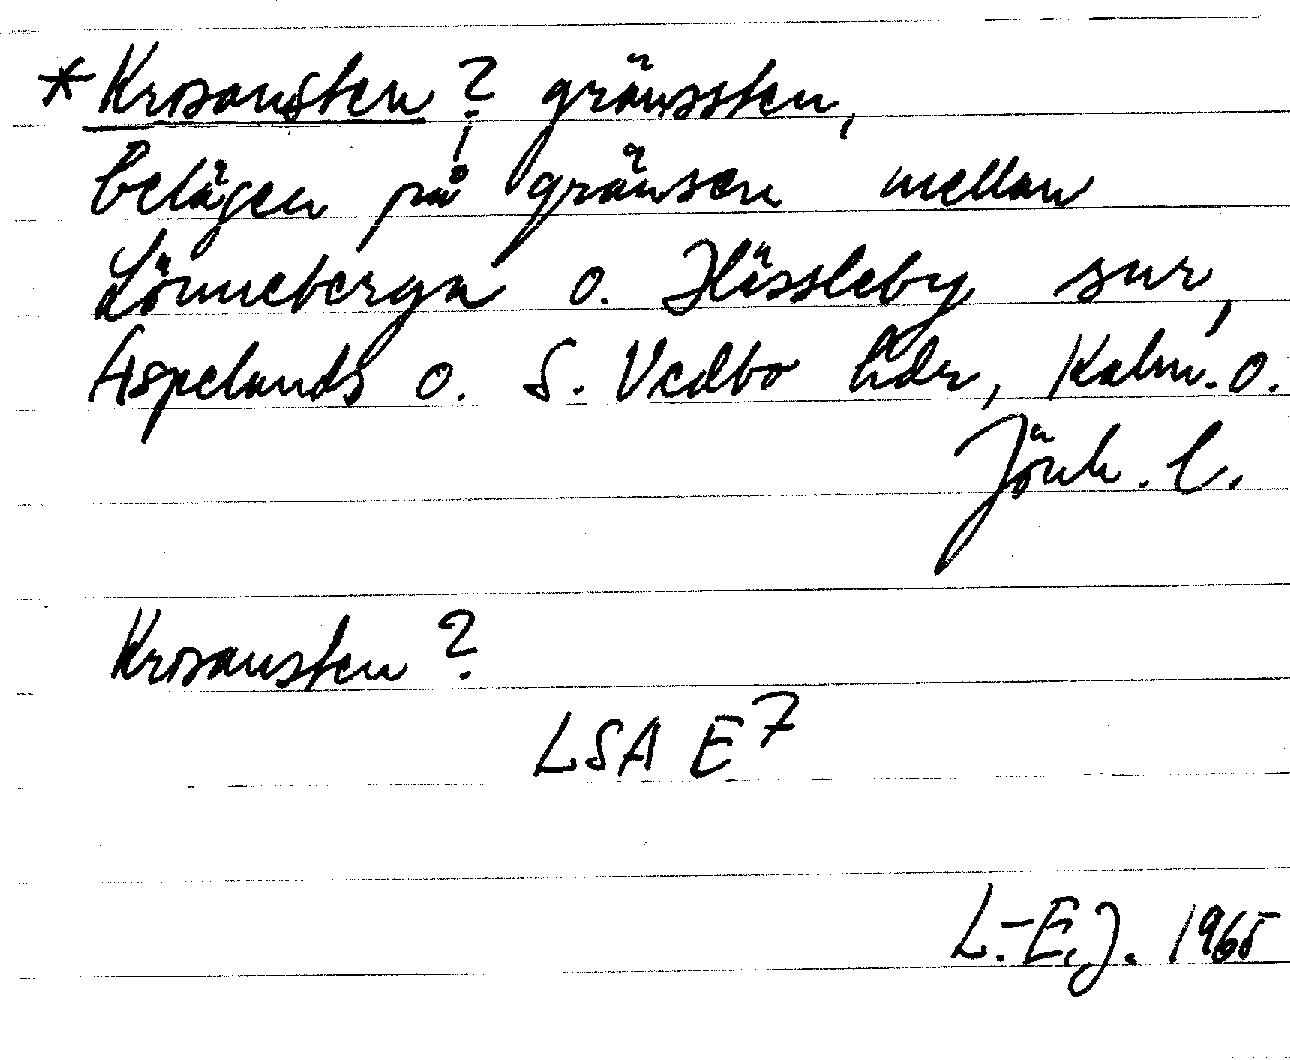 *Krosansten ?, gränssten,
belägen på gränsen mellan
Lönneberga o. Hässleby snr,
Aspelands o. S. Vedbo hdr, Kalm. o.
Jönk. l.
Krosansten ?
LSA E7
L.-E.J. 1965